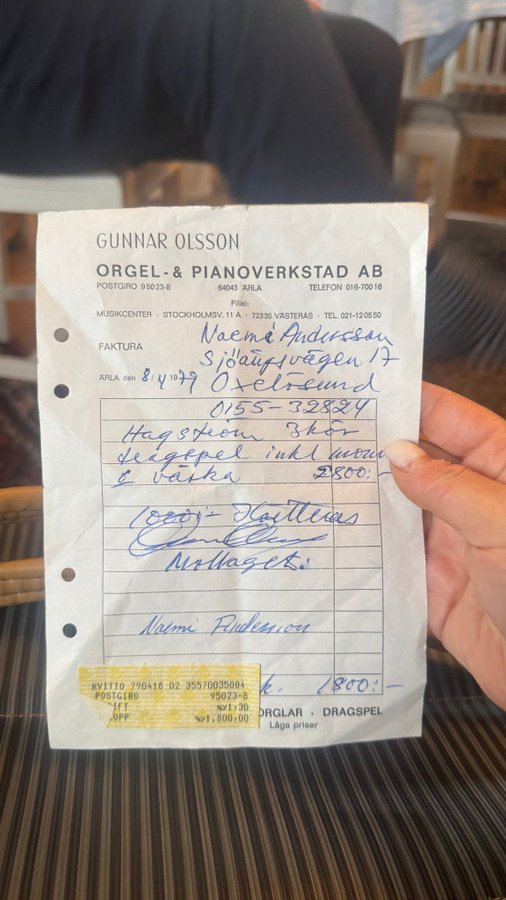 GUNNAR OLSSON
ORGEL- & PIANOVERKSTAD AB
POSTGIRO 95023-8 64043 ÄRLA TELEFON 016-70016
Filial:
MUSIKCENTER · STOCKHOLMSV. 11 A · 72335 VÄSTERÅS · TEL. 021-120550
Naemi Andersson
FAKTURA
Sjötäppsvägen 17
ÄRLA den 8/4 1979 Oxelösund
0155-32824
Hagström 3kör
dragspel inkl moms
& väska 2800:-
1000:-
Mottaget:
Naemi Andersson
k. 1800:-
KVITTO 790418 02 35570035004
POSTGIRO 95023-8
IFT 1,30
OPP 1.800,00
ORGLAR · DRAGSPEL
Låga priser